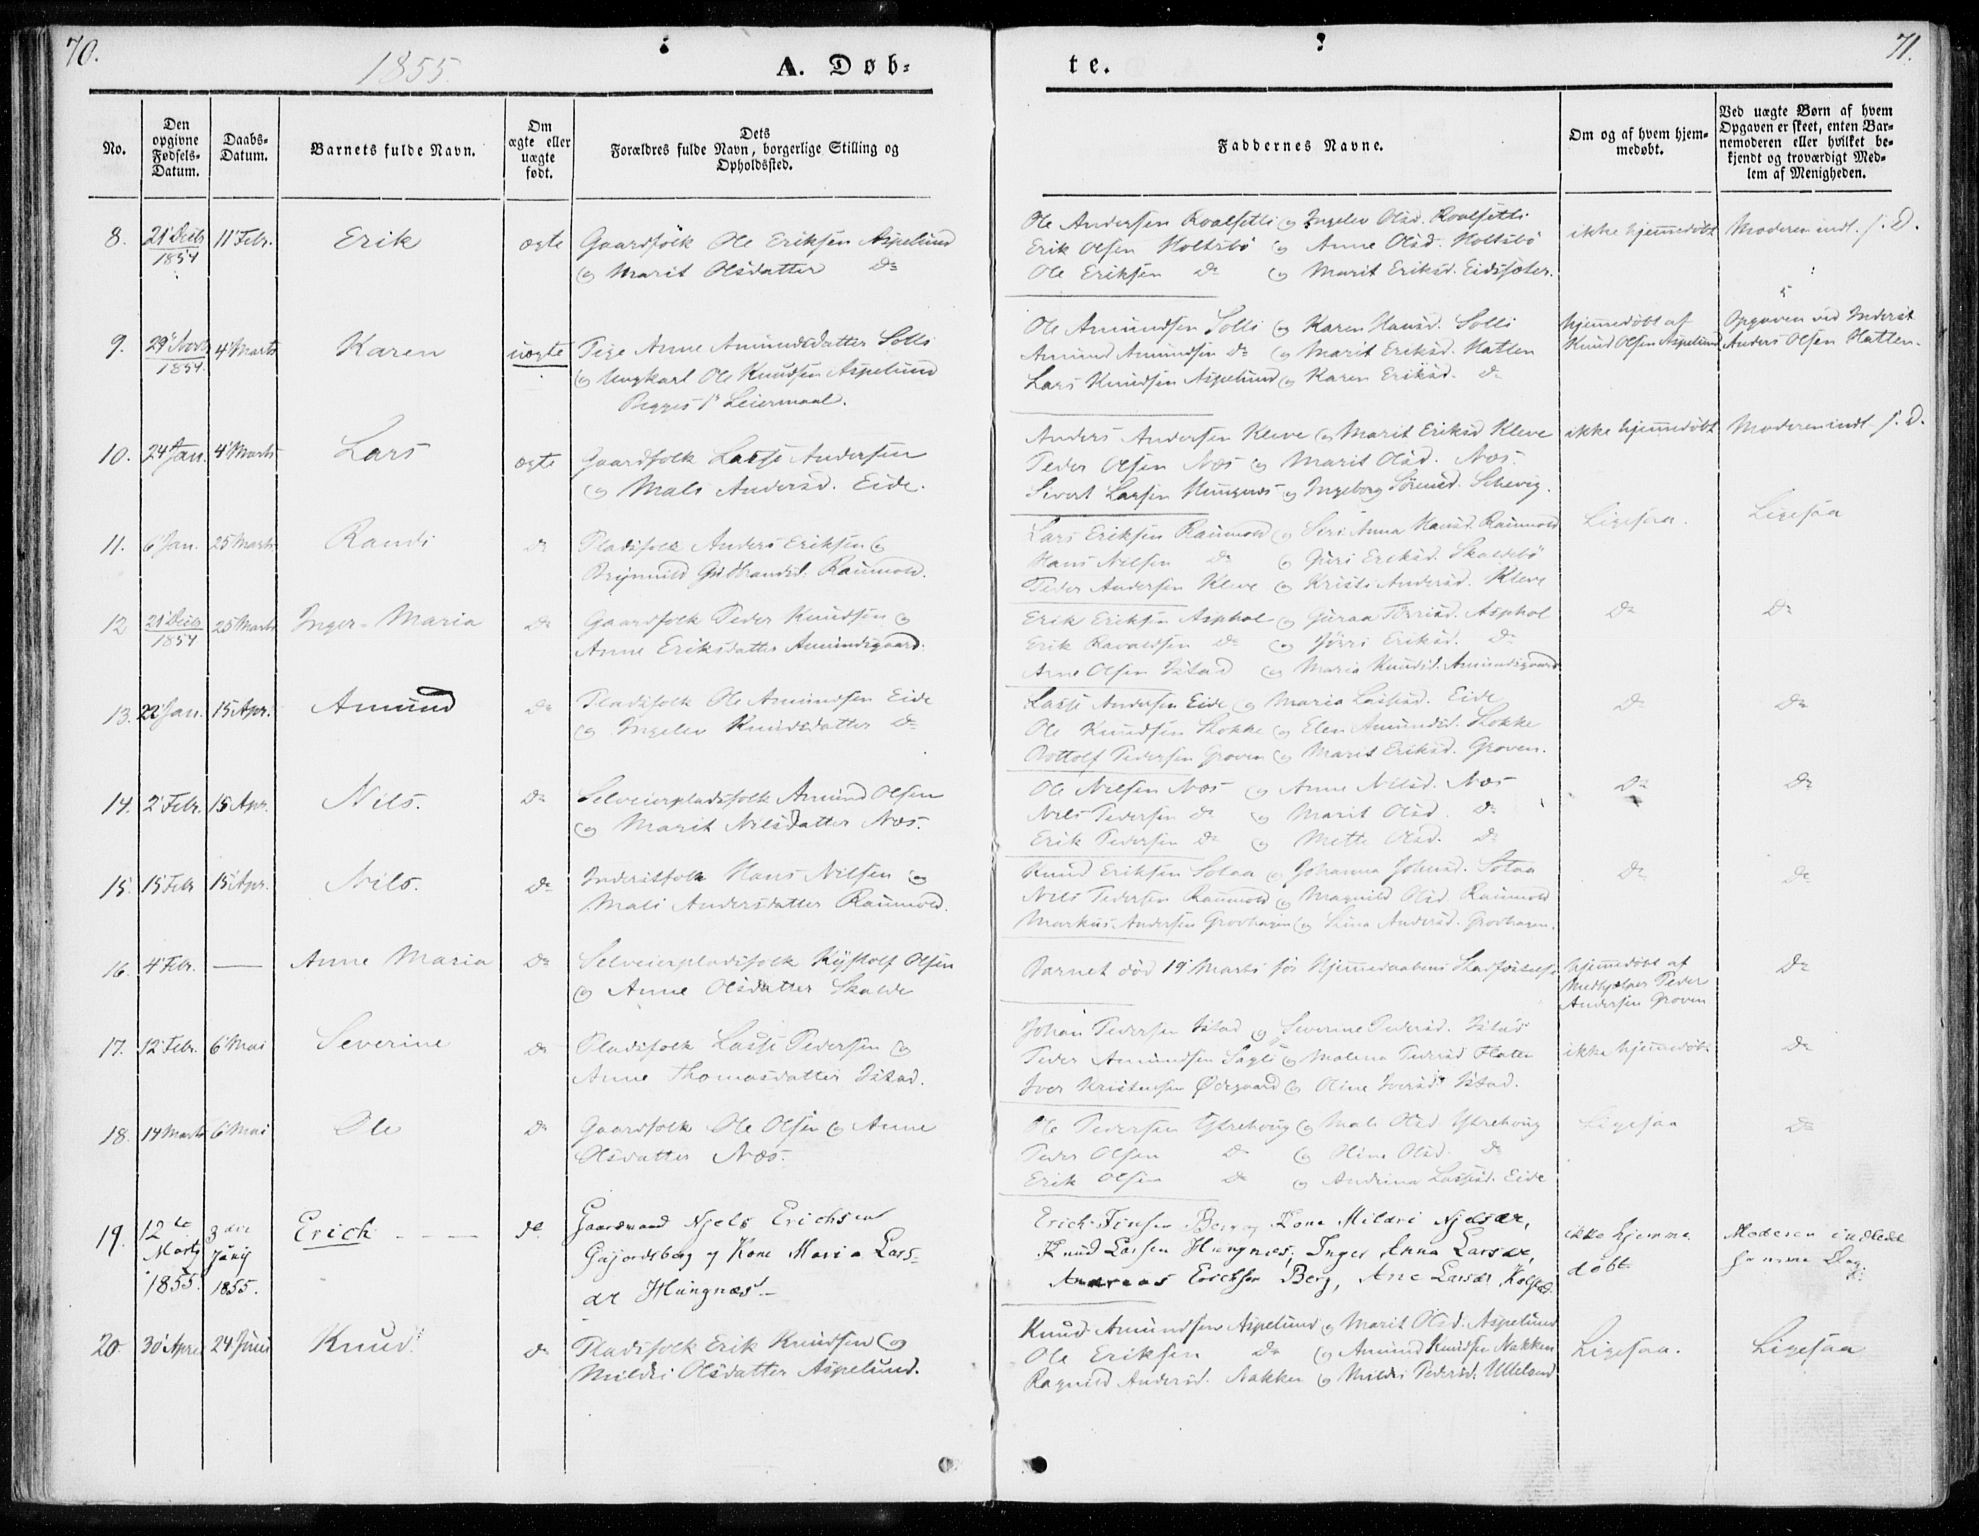 70.
1855.
A. Døb-
te.
71.
No.
Den opgivne Fødsels-Datum.
Daabs-Datum.
Barnets fulde Navn.
Om ægte eller uægte født.
Dets
Forældres fulde Navn, borgerlige Stilling og
Opholdssted.
Faddernes Navne.
Om og af hvem hjem-
medøbt.
Ved uægte Børn af hvem
Opgaven er skeet, enten Bar-
nemoderen eller hvilket be-
kjendt og troværdigt Med-
lem af Menigheden.
8. 21 Decb 1854 11 Febr. Erik ægte
Gaardfolk Ole Eriksen Aspelund
og Marit Olsdatter Do
Ole Andersen Roalsetli og Ingelev Olsd. Roalsetli
Erik Olsen Holtsbø og Anne Olsd. Holtsbø
Ole Eriksen Do og Marit Eriksd. Eidssæter.
ikke hjemedøbt
Moderen indl. s. D.
9. 29 1854. 4 Marts Karen uægte
Pige Anne Amundsdatter Solli
og Ungkarl Ole Knudsen Aspelund
Begges 1ste Leiermaal.
Ole Amundsen Solli og Karen Hansd. Solli
Amund Amundsen Do og Marit Eriksd. Hatlen
Lars Knudsen Aspelund og Karen Eriksd. Do
hjemedøbt af
Knud Olsen Aspelund
Opgaven ved Inderst
Anders Olsen Hatlen.
10. 24 Jan. 4 Marts Lars ægte
Gaardfolk Lasse Andersen
og Mali Andersd. Eide.
Anders Andersen Kleve og Marit Eriksd Kleve
Peder Olsen Næs og Marit Olsd. Næs.
Sivert Larsen Hungnes og Ingeborg Sørensd.
ikke hjemedøbt
Moderen indl. s. D.
11. 6 Jan. 25 Marts Randi Do
Pladsfolk Anders Eriksen og
Brynnild Gudbrandsd. Raumvold.
Lars Eriksen Raumvold og Siri Anna Hansd. Raumvold
Hans Nilsen Do og Guri Eriksd. Skaldebø
Peder Andersen Kleve og Kristi Andersd. Kleve
Ligesaa.
Ligesaa
12 21 Decb 1854 25 Marts Inger-Maria Do
Gaardfolk Peder Knudsen og
Anne Eriksdatter Amundsgaard.
Erik Eriksen Asphol og Guraa Asphol
Erik Ravaldsen Do og Eriksd. Do
Arne Olsen Istad og Maria Knudsd. Amundsgaard
Do
Do
13. 22 Jan. 15 Apr. Amund Do
Pladsfolk Ole Amundsen Eide
og Ingelev Knudsdatter Do
Lasse Andersen Eide og Maria Lassesd. Eide
Ole Knudsen Stokke og Elen Amundsd. Stokke
Bottolf Pedersen Groven og Marit Eriksd. Groven.
Do
Do
14. 2 Febr. 15 Apr. Nils. Do
Selveierpladsfolk Amund Olsen
og Marit Nilsdatter Næs.
Ole Nilsen Næs og Anne Nilsd. Næs
Nils Pedersen Do og Marit Olsd. Do
Erik Pedersen Do og Mette Olsd. Do
Do
Do
15. 15 Febr 15 Apr. Nils. Do
Inderstfolk Hans Nilsen og
Mali Andersdatter Raumvold.
Knud Eriksen Solaa og Johanna Johnsd. Solaa
Nils Pedersen Raumvold og Magnild Olsd. Raumvold
Markus Andersen Grovhagen og Andersd. Grovhagen.
Do
Do
16. 4 Febr. — Anne Maria Do
Selveierpladsfolk Olsen
og Anne Olsdatter Skalde
Barnet død 19 Marts før Hjemedaabens Stadfæstelse
hjemedøbt af
Medhjelper Peder
Andersen Groven
Do
17. 12 Febr. 6 Mai Severine Do
Pladsfolk Lasse Pedersen og
Anne Thomasdatter Istad.
Johan Pedersen Istad og Severine Pedersd. Istad
Peder Amundsen Sagli og Malena Pedersd Flaten
Iver Kristensen Ødegaard og Oline Iversd. Istad.
ikke hjemedøbt
Do
18. 14 Marts 6 Mai Ole Do
Gaardfolk Ole Olsen og Anne
Olsdatter Næs.
Ole Pedersen Ystrehoug og Mali Olsd Ystrehoug
Peder Olsen Do og Oline Olsd. Do
Erik Olsen Do og Andrina Lassesd. Eide
Ligesaa
Do
19. 12te Marts 1855. 3die Junij 1855. Erich Do
Gaardmand Njels Erichsen
Gujordsberg og Kone Maria Lars-
dr Hungnæs.
Erich Finsen Berg og Kone Mildri Njelsdr,
Knud Larsen Hungnæs, Inger Anna Larsdr,
Andreas Erichsen Berg, Ane Larsdr
ikke hjemme
døbt
Moderen indledt
samme Dag.
20. 30 April 24 Juni Knud Do
Pladsfolk Erik Knudsen og
Mildri Olsdatter Aspelund.
Knud Amundsen Aspelund og Marit Olsd. Aspelund
Ole Eriksen Do og Amund Knudsen Nakken
Ragnild Andersd. Nakken og Mildri Pedersd. Ullelund
Ligesaa.
Ligesaa